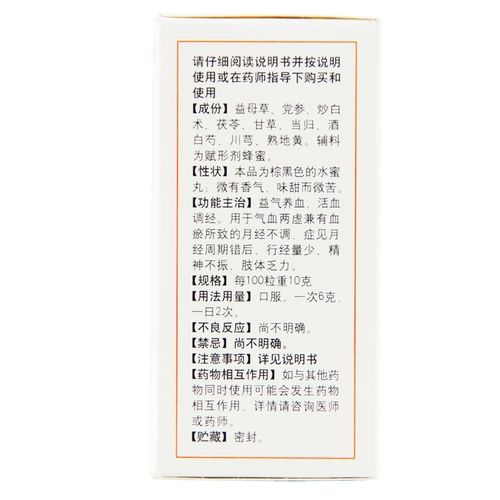 请仔细阅读说明书并按说明
使用或在药师指导下购买和
使用
【成份】益母草、党参、炒白
术、茯苓、甘草、当归、酒
白芍、川芎、熟地黄。辅料
为赋形剂蜂蜜。
【性状】本品为棕黑色的水蜜
丸；微有香气，味甜而微苦。
【功能主治】益气养血，活血
调经。用于气血两虚兼有血
瘀所致的月经不调，症见月
经周期错后、行经量少、精
神不振、肢体乏力。
【规格】每100粒重10克
【用法用量】口服。一次6克，
一日2次。
【不良反应】尚不明确。
【禁忌】尚不明确。
【注意事项】详见说明书
【药物相互作用】如与其他药
物同时使用可能会发生药物
相互作用，详情请咨询医师
或药师。
【贮藏】密封。